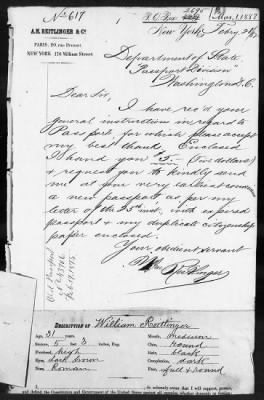 No 617
A. E. REITLINGER & Co.
P. O. Box 2695
Mar. 1, 1887
New York, Feby 26/87
PARIS, 20, rue Drouot
NEW YORK 176 William Street.
Department of State,
"Passport Division"
Washington D. C.
Dear Sir,
I have rec'd your
general instruction in regard to
Passport, for which please accept
my best thanks. Enclosed
I hand you 5.– (five dollars)
& request you to kindly send
me at your very earliest
a new passport as per my
letter of the 25th inst, with expired
passport & my duplicate citizenship
paper enclosed.
Your obedient servant
Wm Reitlinger
Old Passport
Feb 17, 1875
DESCRIPTION OF William Reitlinger
Age, 31 years
Mouth, medium
Stature, 5 feet 3 inches, Eng.
Chin, round
Forehead, high
Hair, black
Eyes, dark brown
Complexion, dark
Nose, Roman
Face, full & round
do solemnly swear that I will support, protect,
and defend the Constitution and Government of the United States against all enemies,